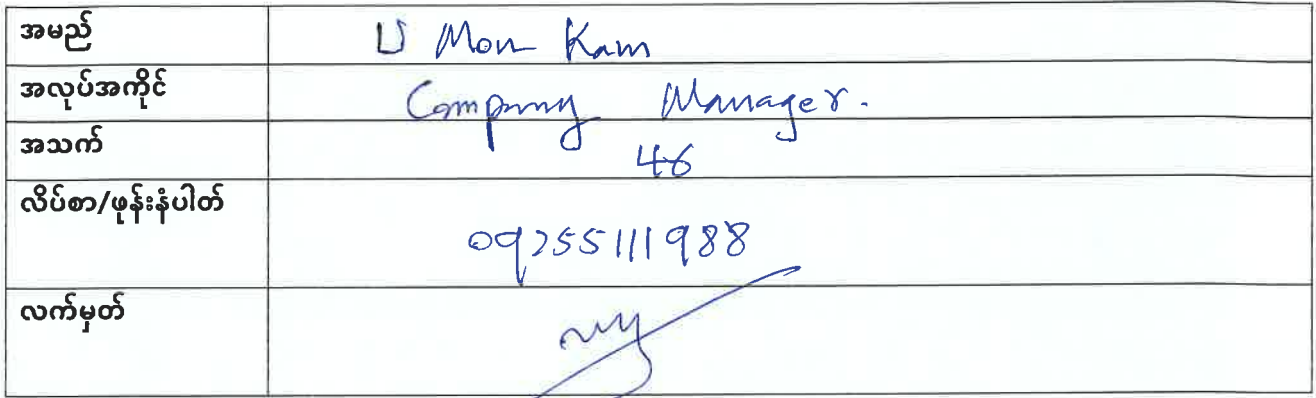 အမည် U Mon Kam
အလုပ်အကိုင် Company Manager.
အသက် 46
လိပ်စာ/ဖုန်းနံပါတ်09255111988
လက်မှတ်